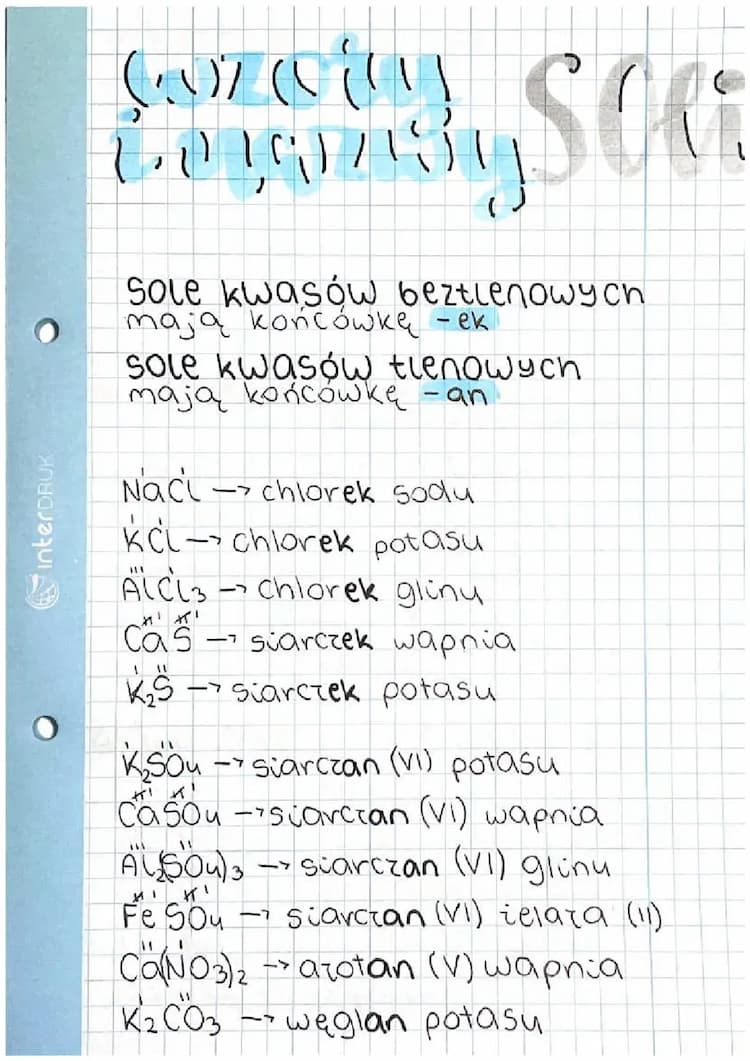 wzory
i nazwy soli
sole kwasów beztlenowych
mają końcówkę -ek
sole kwasów tlenowych
mają końcówkę -an
NaCl → chlorek sodu
KCl → chlorek potasu
AlCl3 → chlorek glinu
CaS → siarczek wapnia
K2S → siarczek potasu
K2SO4 → siarczan (VI) potasu
CaSO4 → siarczan (VI) wapnia
Al2(SO4)3 → siarczan (VI) glinu
FeSO4 → siarczan (VI) żelaza (II)
Ca(NO3)2 → azotan (V) wapnia
K2CO3 → węglan potasu
interDRUK